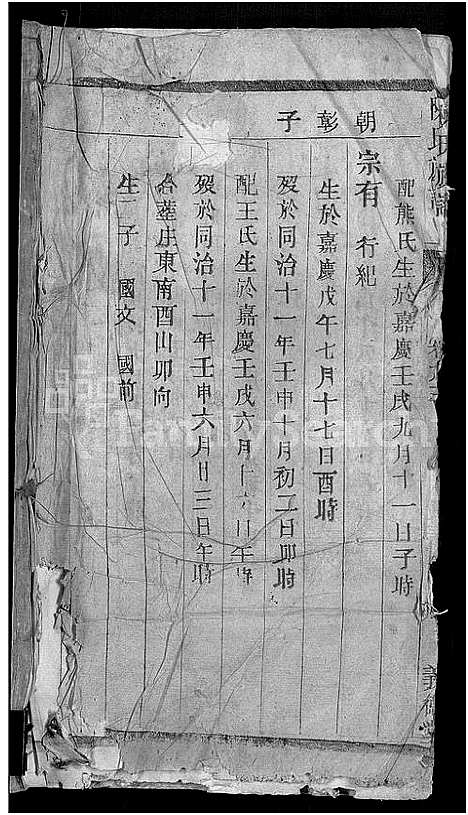 陳氏族譜
義
配熊氏生於嘉慶壬戌九月十一日子時
朝彰子
宗有 行紀
生於嘉慶戊午七月十七日酉時
歿於同治十一年壬申十月初二日卯時
配王氏生於嘉慶壬戌六月十六日午時
歿於同治十一年壬申六月廿三日午時
合葬庄東南酉山卯向
生二子 國文 國前